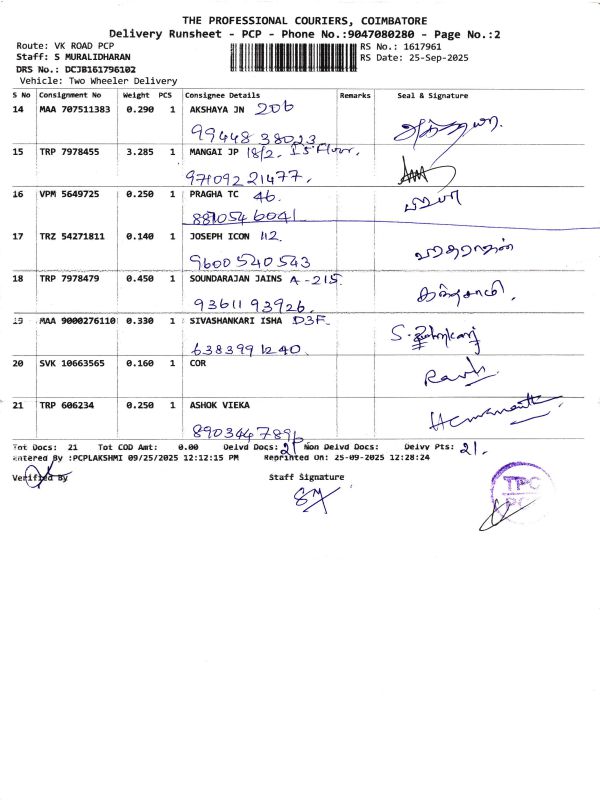 THE PROFESSIONAL COURIERS, COIMBATORE
Delivery Runsheet - PCP - Phone No.:9047080280 - Page No.:2
Route: VK ROAD PCP RS No.: 1617961
Staff: S MURALIDHARAN RS Date: 25-Sep-2025
DRS No.: DCJB161796102
Vehicle: Two Wheeler Delivery
S No Consignment No Weight PCS Consignee Details Remarks Seal & Signature
14 MAA 707511383 0.290 1 AKSHAYA JN 206
99448 38023
15 TRP 7978455 3.285 1 MANGAI JP 18/2, 1st Floor,
97109221477,
16 VPM 5649725 0.250 1 PRAGHA TC 46.
8810546041
17 TRZ 54271811 0.140 1 JOSEPH ICON 112.
9600540543
18 TRP 7978479 0.450 1 SOUNDARAJAN JAINS A-215
93611 93926. கந்தசாமி.
19 MAA 9000276110 0.330 1 SIVASHANKARI ISHA D3F.
6383991240.
20 SVK 10663565 0.160 1 COR
21 TRP 606234 0.250 1 ASHOK VIEKA
8903447896
Tot Docs: 21 Tot COD Amt: 0.00 Delvd Docs: 21 Non Delvd Docs: Delvy Pts: 21.
Entered By :PCPLAKSHMI 09/25/2025 12:12:15 PM Reprinted On: 25-09-2025 12:28:24
Verified By Staff Signature
TPC